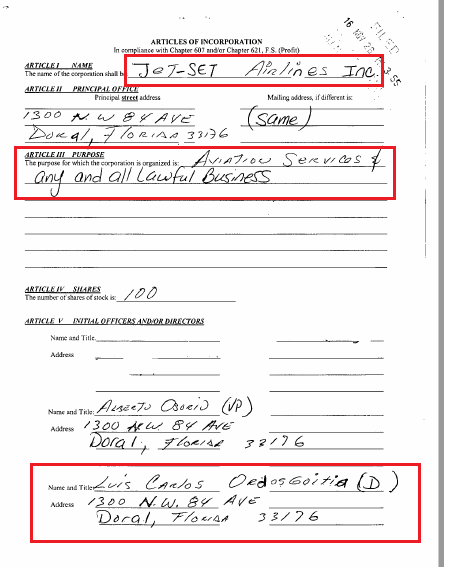 16 NOV
FILED
ARTICLES OF INCORPORATION
In compliance with Chapter 607 and/or Chapter 621, F.S. (Profit)
ARTICLE I NAME
The name of the corporation shall be JET-SET AIRLINES INC.
ARTICLE II PRINCIPAL OFFICE
Principal street address Mailing address, if different is:
1300 N.W 84 AVE (same)
DORAL, FLORIDA 33176
ARTICLE III PURPOSE
The purpose for which the corporation is organized is: AVIATION SERVICES &
any and all Lawful Business
ARTICLE IV SHARES
The number of shares of stock is: 100
ARTICLE V INITIAL OFFICERS AND/OR DIRECTORS
Name and Title:
Address
Name and Title: ALBERTO OSORIO (VP)
Address 1300 N.W. 84 AVE
DORAL, FLORIDA 33176
Name and Title: LUIS CARLOS ORDOSGOITIA (D)
Address 1300 N.W. 84 AVE
DORAL, FLORIDA 33176